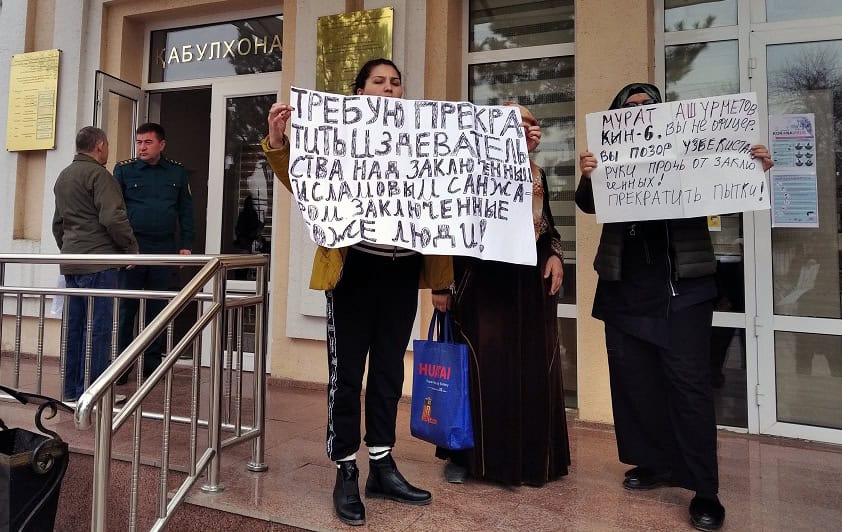 ҚАБУЛХОНА
ТРЕБУЮ ПРЕКРА
ТИТЬ ИЗДЕВАТЕЛЬ
СТВА НАД ЗАКЛЮЧЕННЫМ
ИСЛАМОВЫМ САНЖА-
РОМ ЗАКЛЮЧЕННЫЕ
ТОЖЕ ЛЮДИ!
МУРАТ АШУРМЕТОВ
КИН-6. ВЫ НЕ ОФИЦЕР.
ВЫ ПОЗОР УЗБЕКИСТА
РУКИ ПРОЧЬ ОТ ЗАКЛЮ
ЧЕННЫХ!
ПРЕКРАТИТЬ ПЫТКИ!